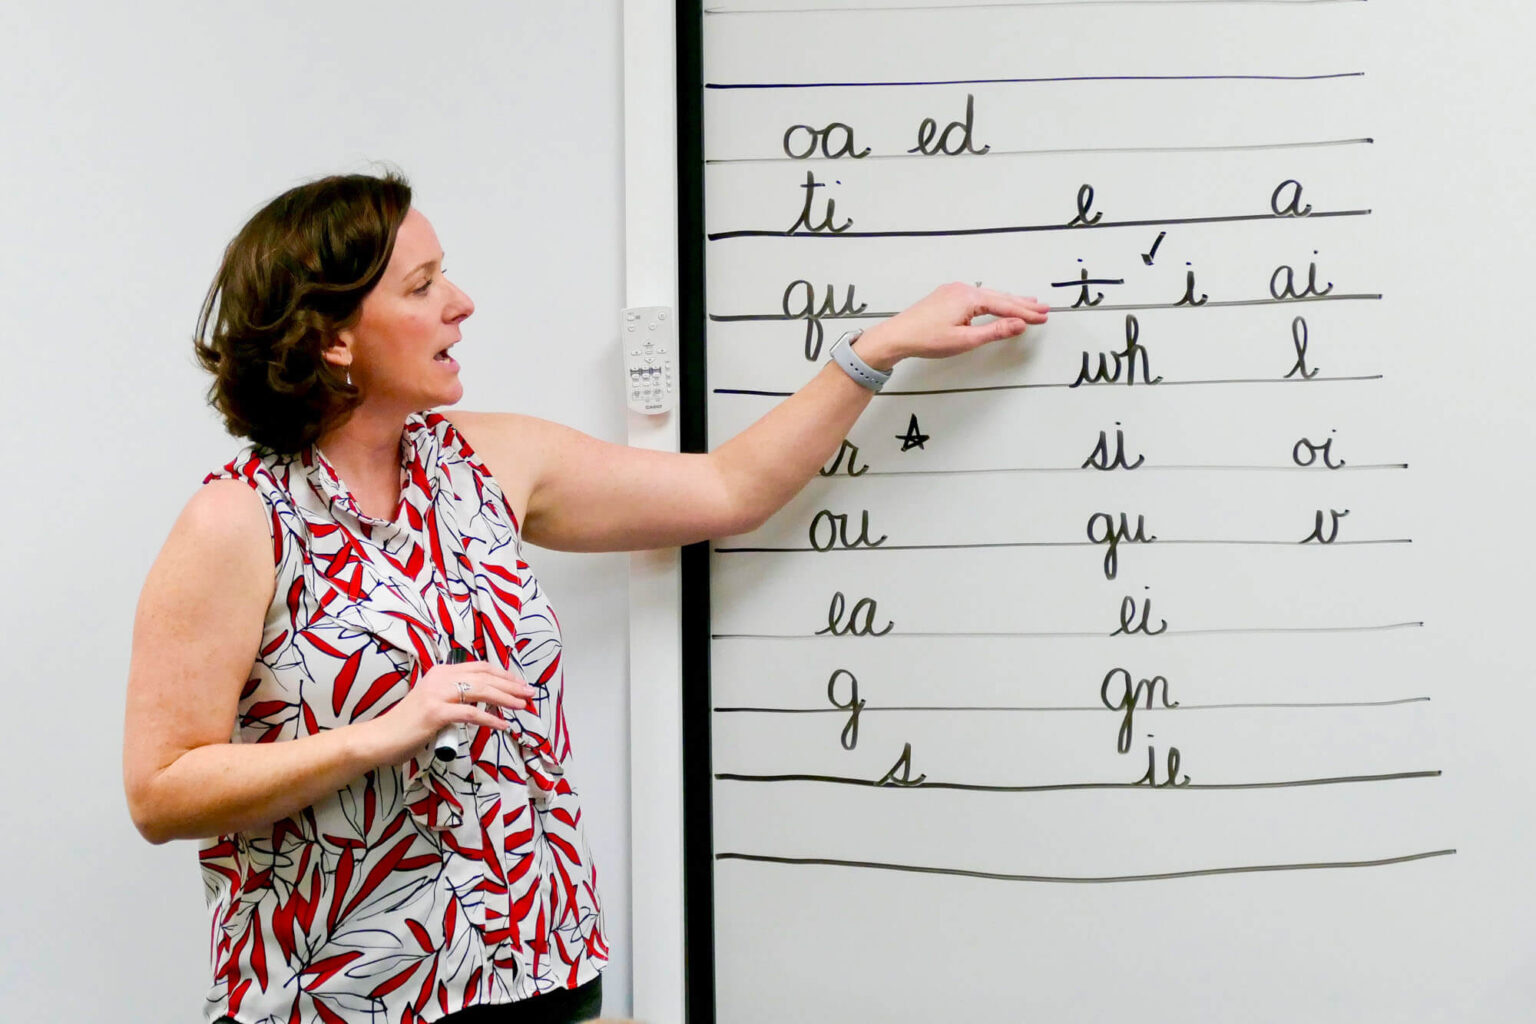 oa ed
ti e a
qu i i ai
wh l
r si oi
ou gu v
ea ei
g gn
s ie
CASIO